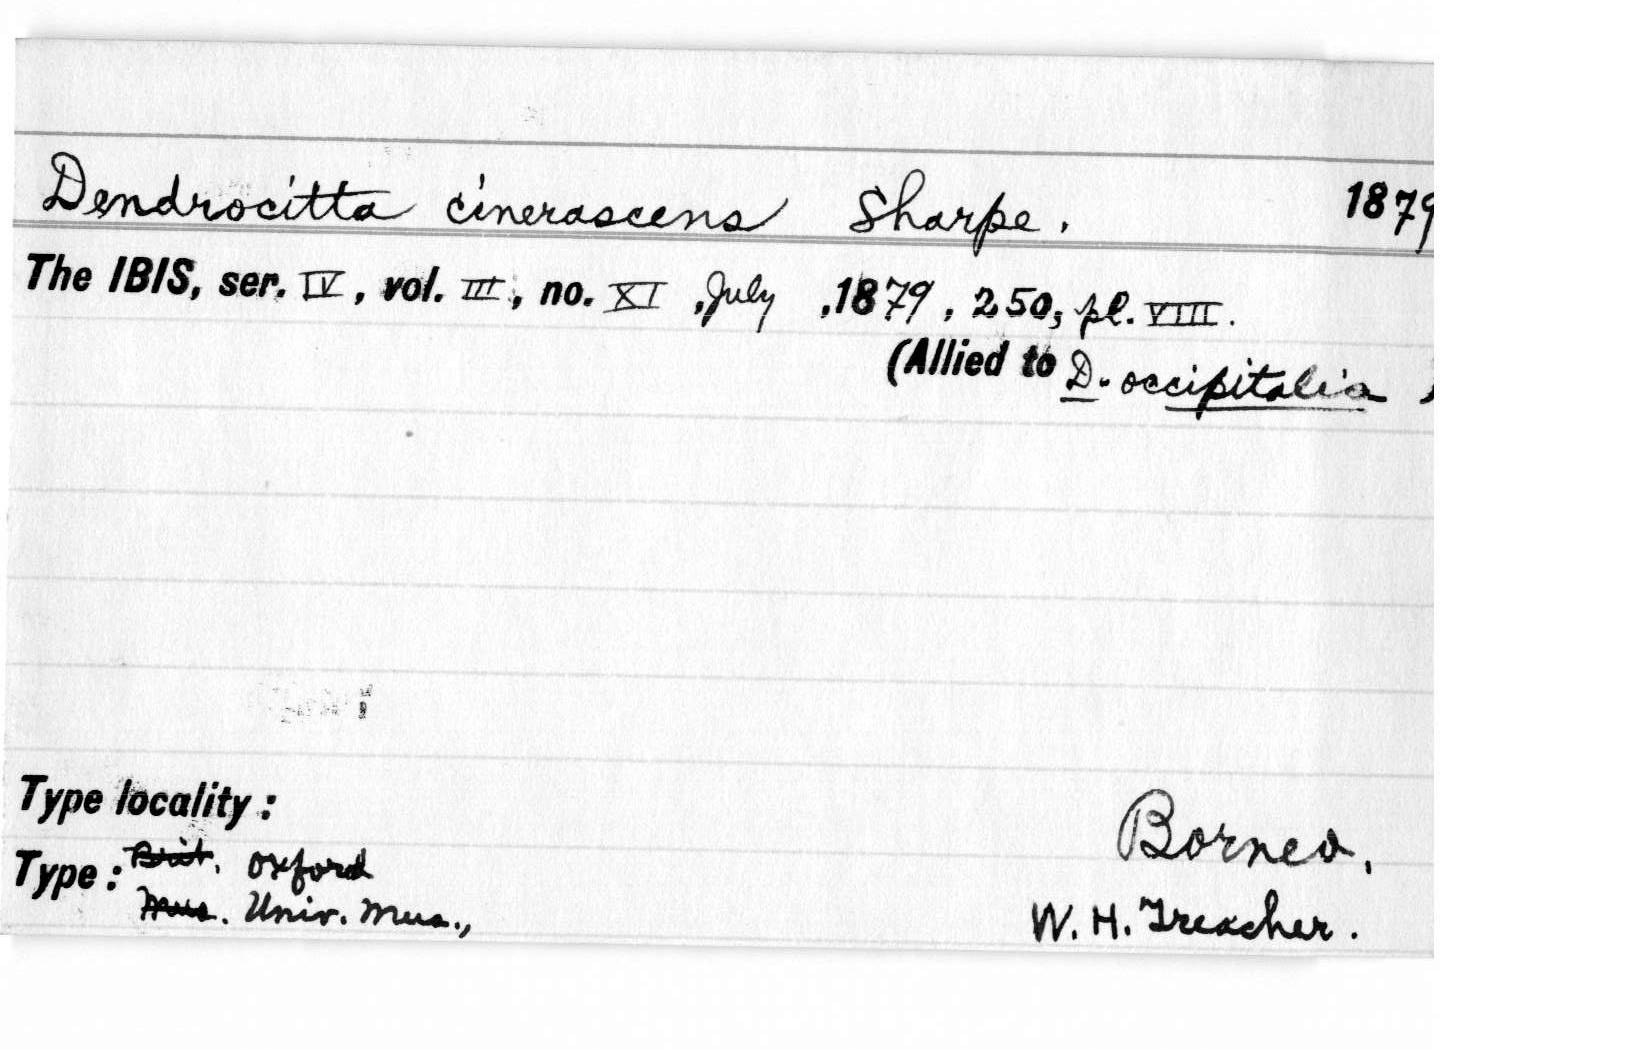 Dendrocitta cinerascens Sharpe. 1879
The IBIS, ser. IV, vol. III, no. XI, July, 1879, 250, pl. VIII.
(Allied to D. occipitalis )
Type locality: Borneo,
Type: Brit. Oxford
Mus. Univ. Mus., W. H. Treacher.